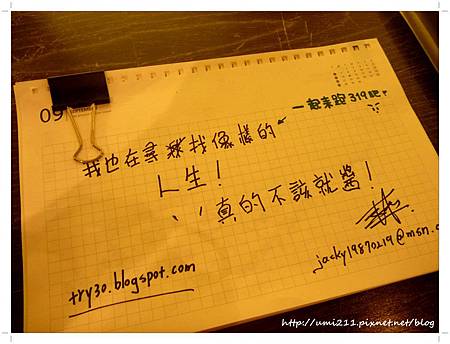 09
一起來跑319吧！
我也在尋找像樣的
人生！
真的不該就醬！
try30.blogspot.com
jacky19870219@msn.c
http://umi211.pixnet.net/blog